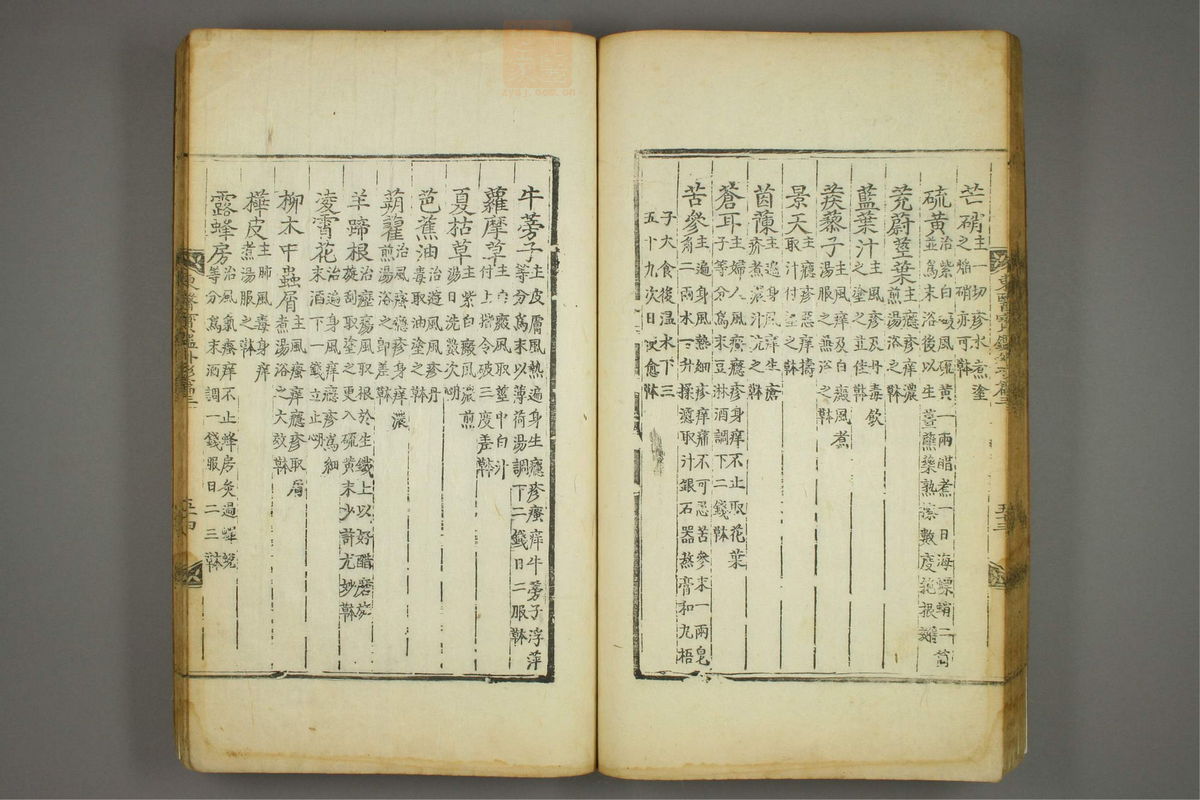 芒硝主一切疹水煮塗
之焰硝亦可本
硫黃治紫白癜風硫黃一兩醋煮一日海螵蛸二箇
並爲末浴後以生薑蘸藥熟擦數度絶根
茺蔚莖葉主癮疹痒濃
煎湯浴之本
藍葉汁主風疹及丹毒飮
之塗之並佳本
蒺藜子主風痒及白癜風煮
湯服之兼浴之本
景天主癮疹惡痒擣
取汁付塗之本
茵蔯主遍身風痒生瘡
疥煮濃汁洗之本
蒼耳主婦人風瘙癮疹身痒不止取花葉
子等分爲末豆淋酒調下二錢本
苦參主遍身風熱細疹痒痛不可忍苦參末一兩皂
角二兩水一升揉濾取汁銀石器熬膏和丸梧
子大食後溫水下三
五十丸次日便愈本
東醫寶鑑外形篇三
五十三
牛蒡子主皮膚風熱遍身生癮疹瘙痒牛蒡子浮萍
等分爲末以薄荷湯調下二錢日二服本
蘿摩草主白癜風取莖中白汁
付上揩令破三度差本
夏枯草主紫白癜風濃煎
湯日洗數次
芭蕉油治遊風風疹丹
毒取油塗之本
蒴藋治風瘙癮疹身痒濃
煎湯浴之卽差本
羊蹄根治癧瘍風取根於生鐵上以好醋磨旋
旋刮取塗之更入硫黃末少許尤妙本
凌霄花治遍身風痒癮疹爲細
末酒下一錢立止
柳木中蟲屑主風瘙痒癮疹取屑
煮湯浴之大效本
樺皮主肺風毒身痒
煮湯服之本
露蜂房治風氣瘙痒不止蜂房灸過蟬蛻
等分爲末酒調一錢服日二三本
東醫寶鑑外形篇三
五十四